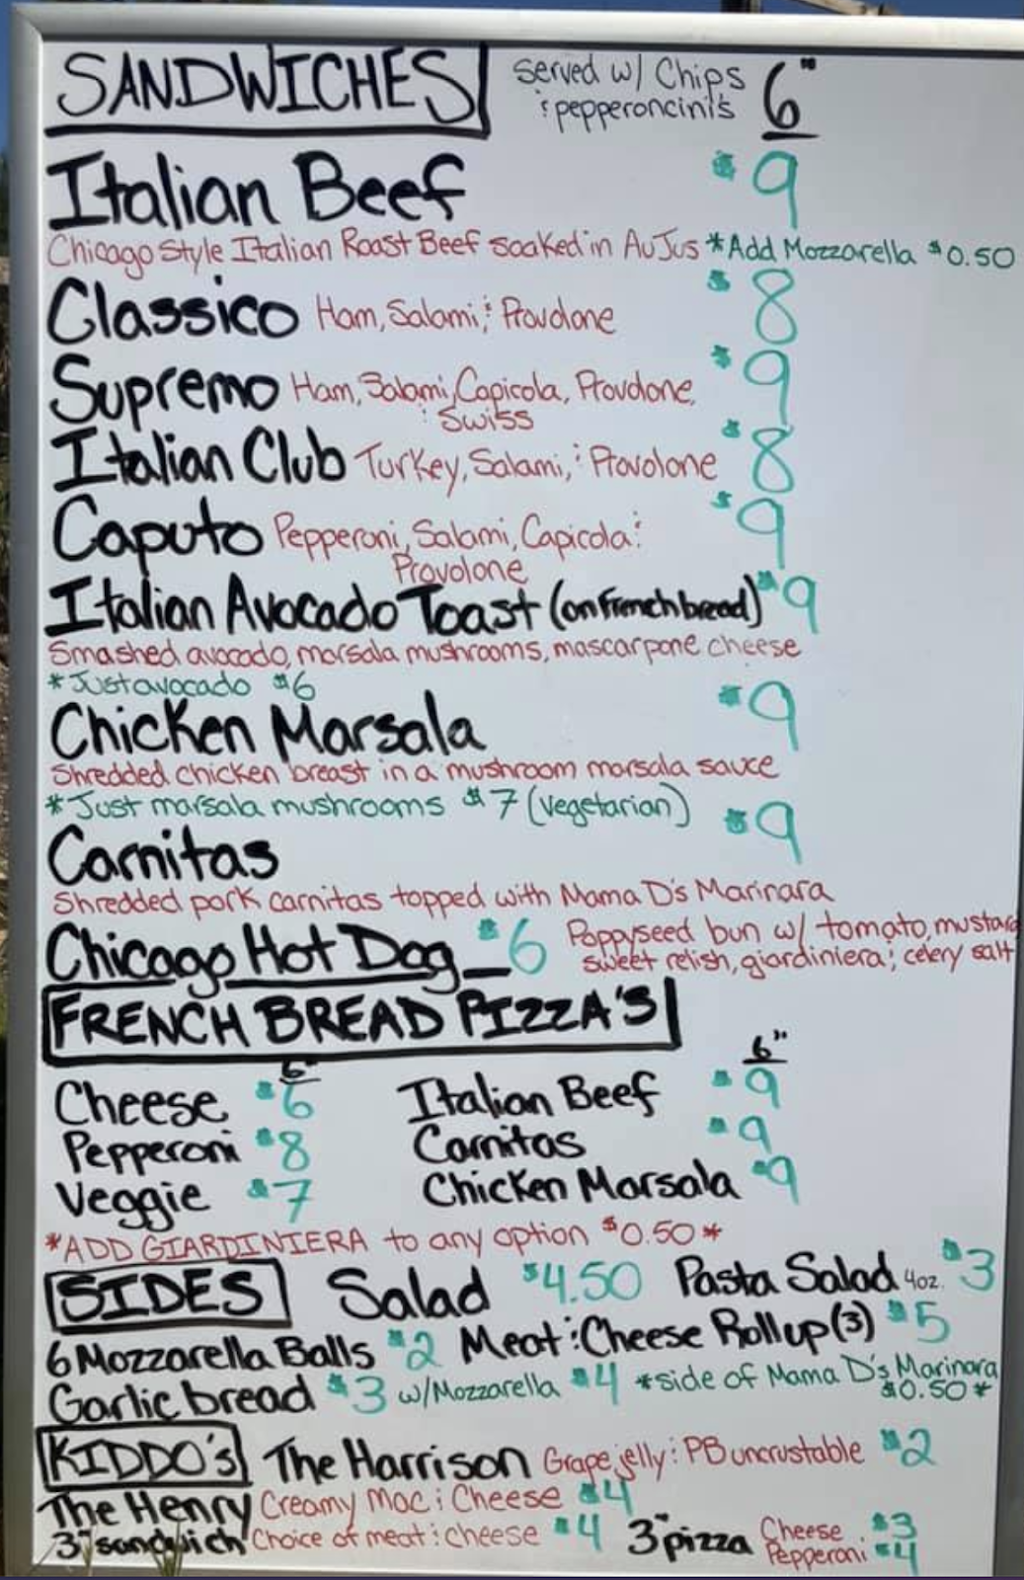 SANDWICHES served w/ Chips & pepperoncinis 6"
Italian Beef $9
Chicago Style Italian Roast Beef soaked in Au Jus *Add Mozzarella $0.50
Classico Ham, Salami, & Provolone $8
Supremo Ham, Salami, Capicola, Provolone, $9
& Swiss
Italian Club Turkey, Salami, & Provolone $8
Caputo Pepperoni, Salami, Capicola & $9
Provolone
Italian Avocado Toast (on French bread) $9
Smashed avocado, marsala mushrooms, mascarpone cheese
*Just avocado $6
Chicken Marsala $9
Shredded chicken breast in a mushroom marsala sauce
*Just marsala mushrooms $7 (vegetarian)
Carnitas $9
Shredded pork carnitas topped with Mama D's Marinara
Chicago Hot Dog $6 Poppyseed bun w/ tomato, mustard
sweet relish, giardiniera & celery salt
FRENCH BREAD PIZZA'S
6" 6"
Cheese $6 Italian Beef $9
Pepperoni $8 Carnitas $9
Veggie $7 Chicken Marsala $9
*ADD GIARDINIERA to any option $0.50*
SIDES Salad $4.50 Pasta Salad 4oz. $3
6 Mozzarella Balls $2 Meat & Cheese Rollup (3) $5
Garlic bread $3 w/Mozzarella $4 *side of Mama D's Marinara
$0.50*
KIDDO'S The Harrison Grape jelly & PB uncrustable $2
The Henry Creamy Mac & Cheese $4
3" sandwich Choice of meat & cheese $4 3" pizza Cheese $3
Pepperoni $4